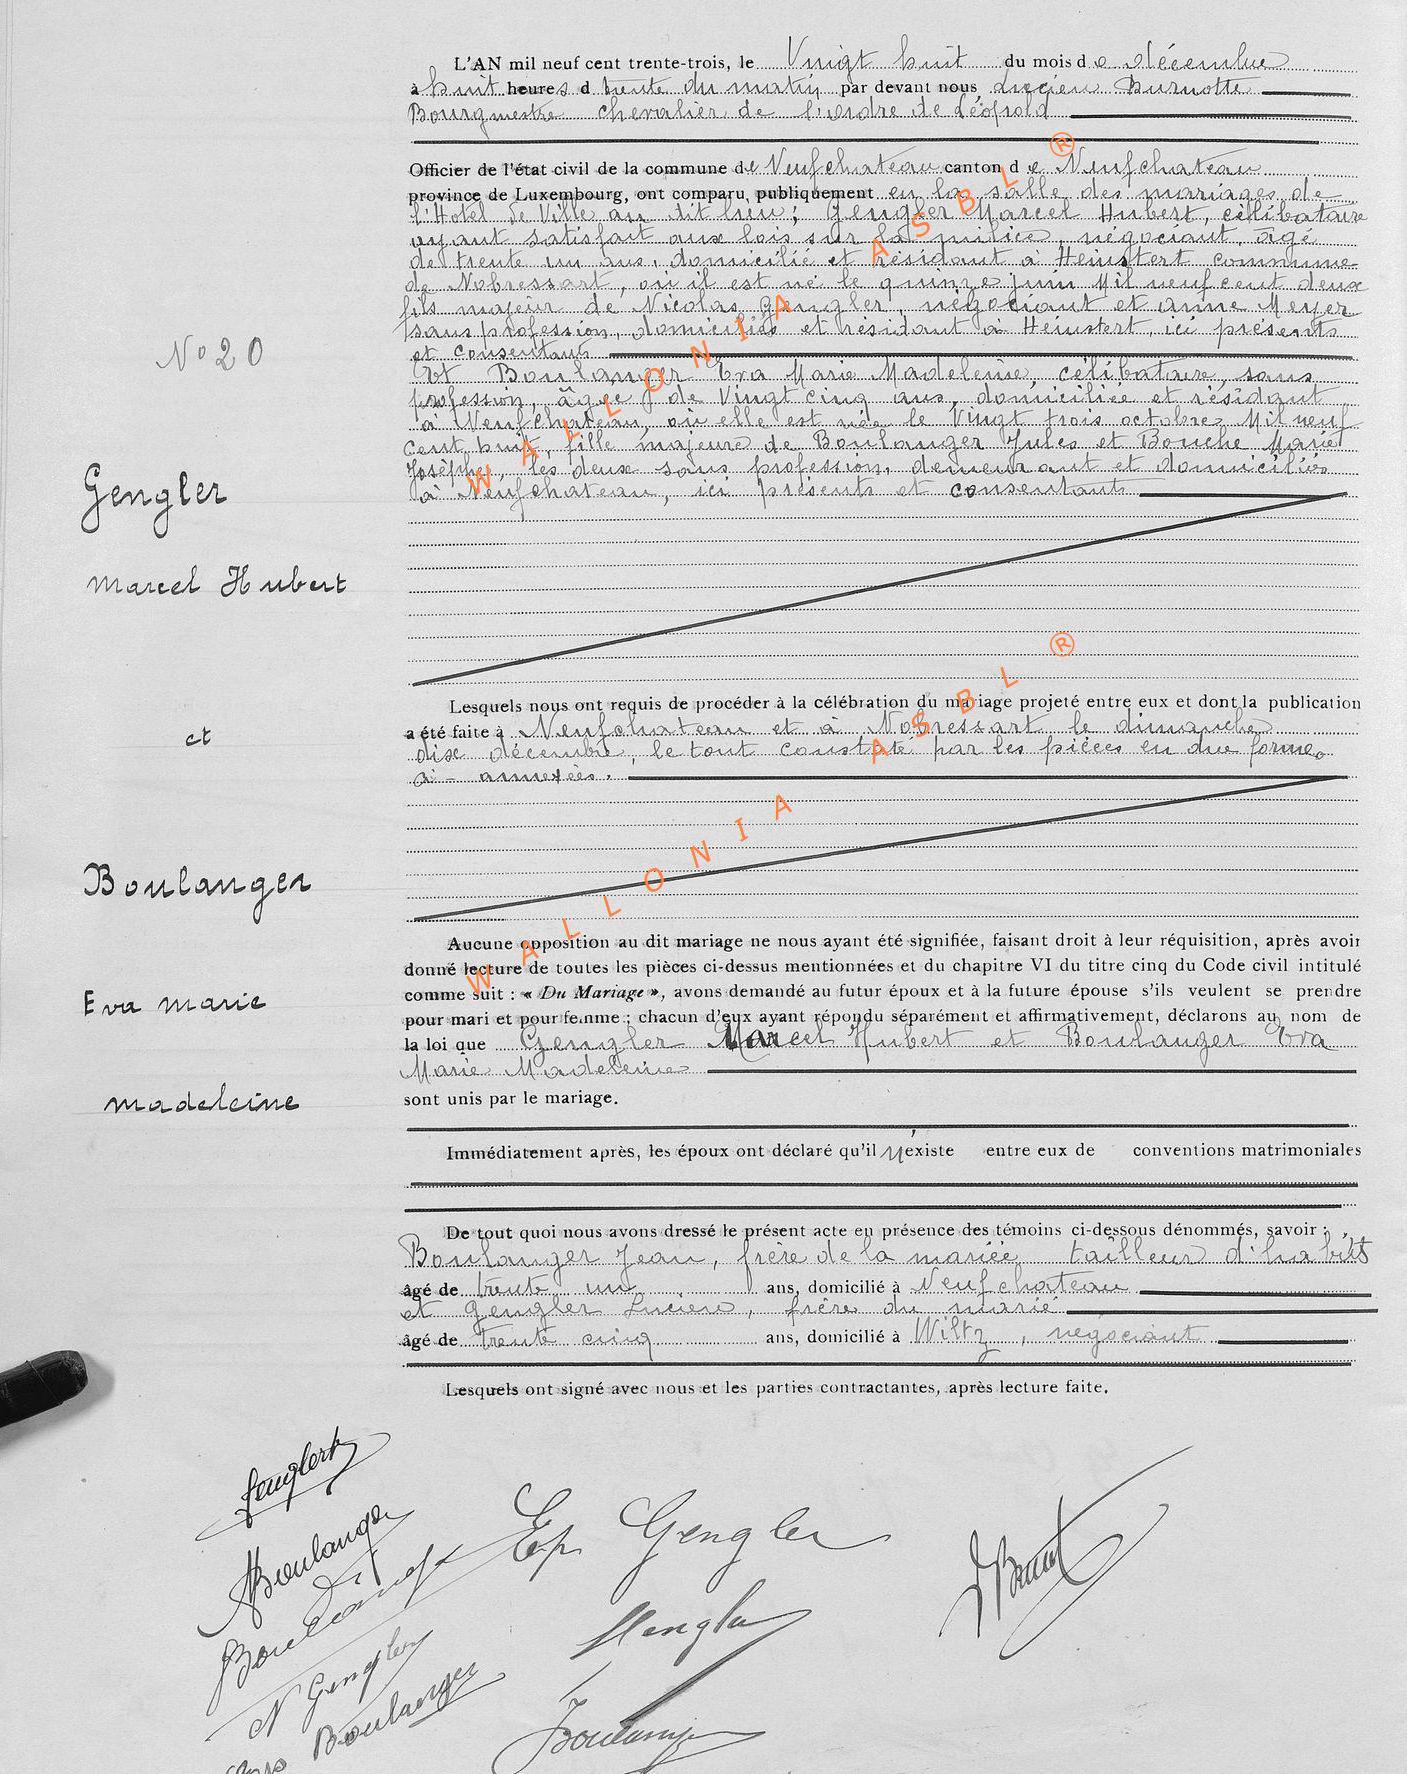 L'AN mil neuf cent trente-trois, le Vingt huit du mois de décembre
à huit heures d trente du matin par devant nous Lucien Burnotte
Bourgmestre chevalier de l'ordre de Léopold
Officier de l'état civil de la commune de Neufchateau canton de Neufchateau
province de Luxembourg, ont comparu publiquement en la salle des mariages de
l'Hôtel de Ville au dit lieu; Gengler Marcel Hubert, célibataire
ayant satisfait aux lois sur la milice, négociant, âgé
de trente un ans, domicilié et résidant à Heinstert commune
de Nobressart, où il est né le quinze juin Mil neuf cent deux
fils majeur de Nicolas Gengler, négociant et Anne Meyer
sans profession, domiciliés et résidant à Heinstert, ici présents
et consentants
N° 20
Et Boulanger Eva Marie Madeleine, célibataire, sans
profession, âgée de Vingt cinq ans, domiciliée et résidant
à Neufchateau, où elle est née le Vingt trois octobre Mil neuf
cent huit, fille majeure de Boulanger Jules et Bouche Marie
Joséphe, les deux sans profession, demeurant et domiciliés
à Neufchateau, ici présents et consentants
Gengler
Marcel Hubert
et
Boulanger
Eva Marie
Madeleine
Lesquels nous ont requis de procéder à la célébration du mariage projeté entre eux et dont la publication
a été faite à Neufchateau et à Nobressart le dimanche
dix décembre, le tout constaté par les pièces en due forme
ci-annexées.
Aucune opposition au dit mariage ne nous ayant été signifiée, faisant droit à leur réquisition, après avoir
donné lecture de toutes les pièces ci-dessus mentionnées et du chapitre VI du titre cinq du Code civil intitulé
comme suit : « Du Mariage », avons demandé au futur époux et à la future épouse s'ils veulent se prendre
pour mari et pour femme ; chacun d'eux ayant répondu séparément et affirmativement, déclarons au nom de
la loi que Gengler Marcel Hubert et Boulanger Eva
Marie Madeleine
sont unis par le mariage.
Immédiatement après, les époux ont déclaré qu'il n'existe entre eux de conventions matrimoniales
De tout quoi nous avons dressé le présent acte en présence des témoins ci-dessous dénommés, savoir :
Boulanger Jean, frère de la mariée tailleur d'habits
âgé de trente un ans, domicilié à Neufchateau
et Gengler Lucien, frère du marié
âgé de trente cinq ans, domicilié à Wiltz, négociant
Lesquels ont signé avec nous et les parties contractantes, après lecture faite.
Boulanger
Ep Gengler
N Gengler
Boulanger
WALLONIA ASBL ®
WALLONIA ASBL ®